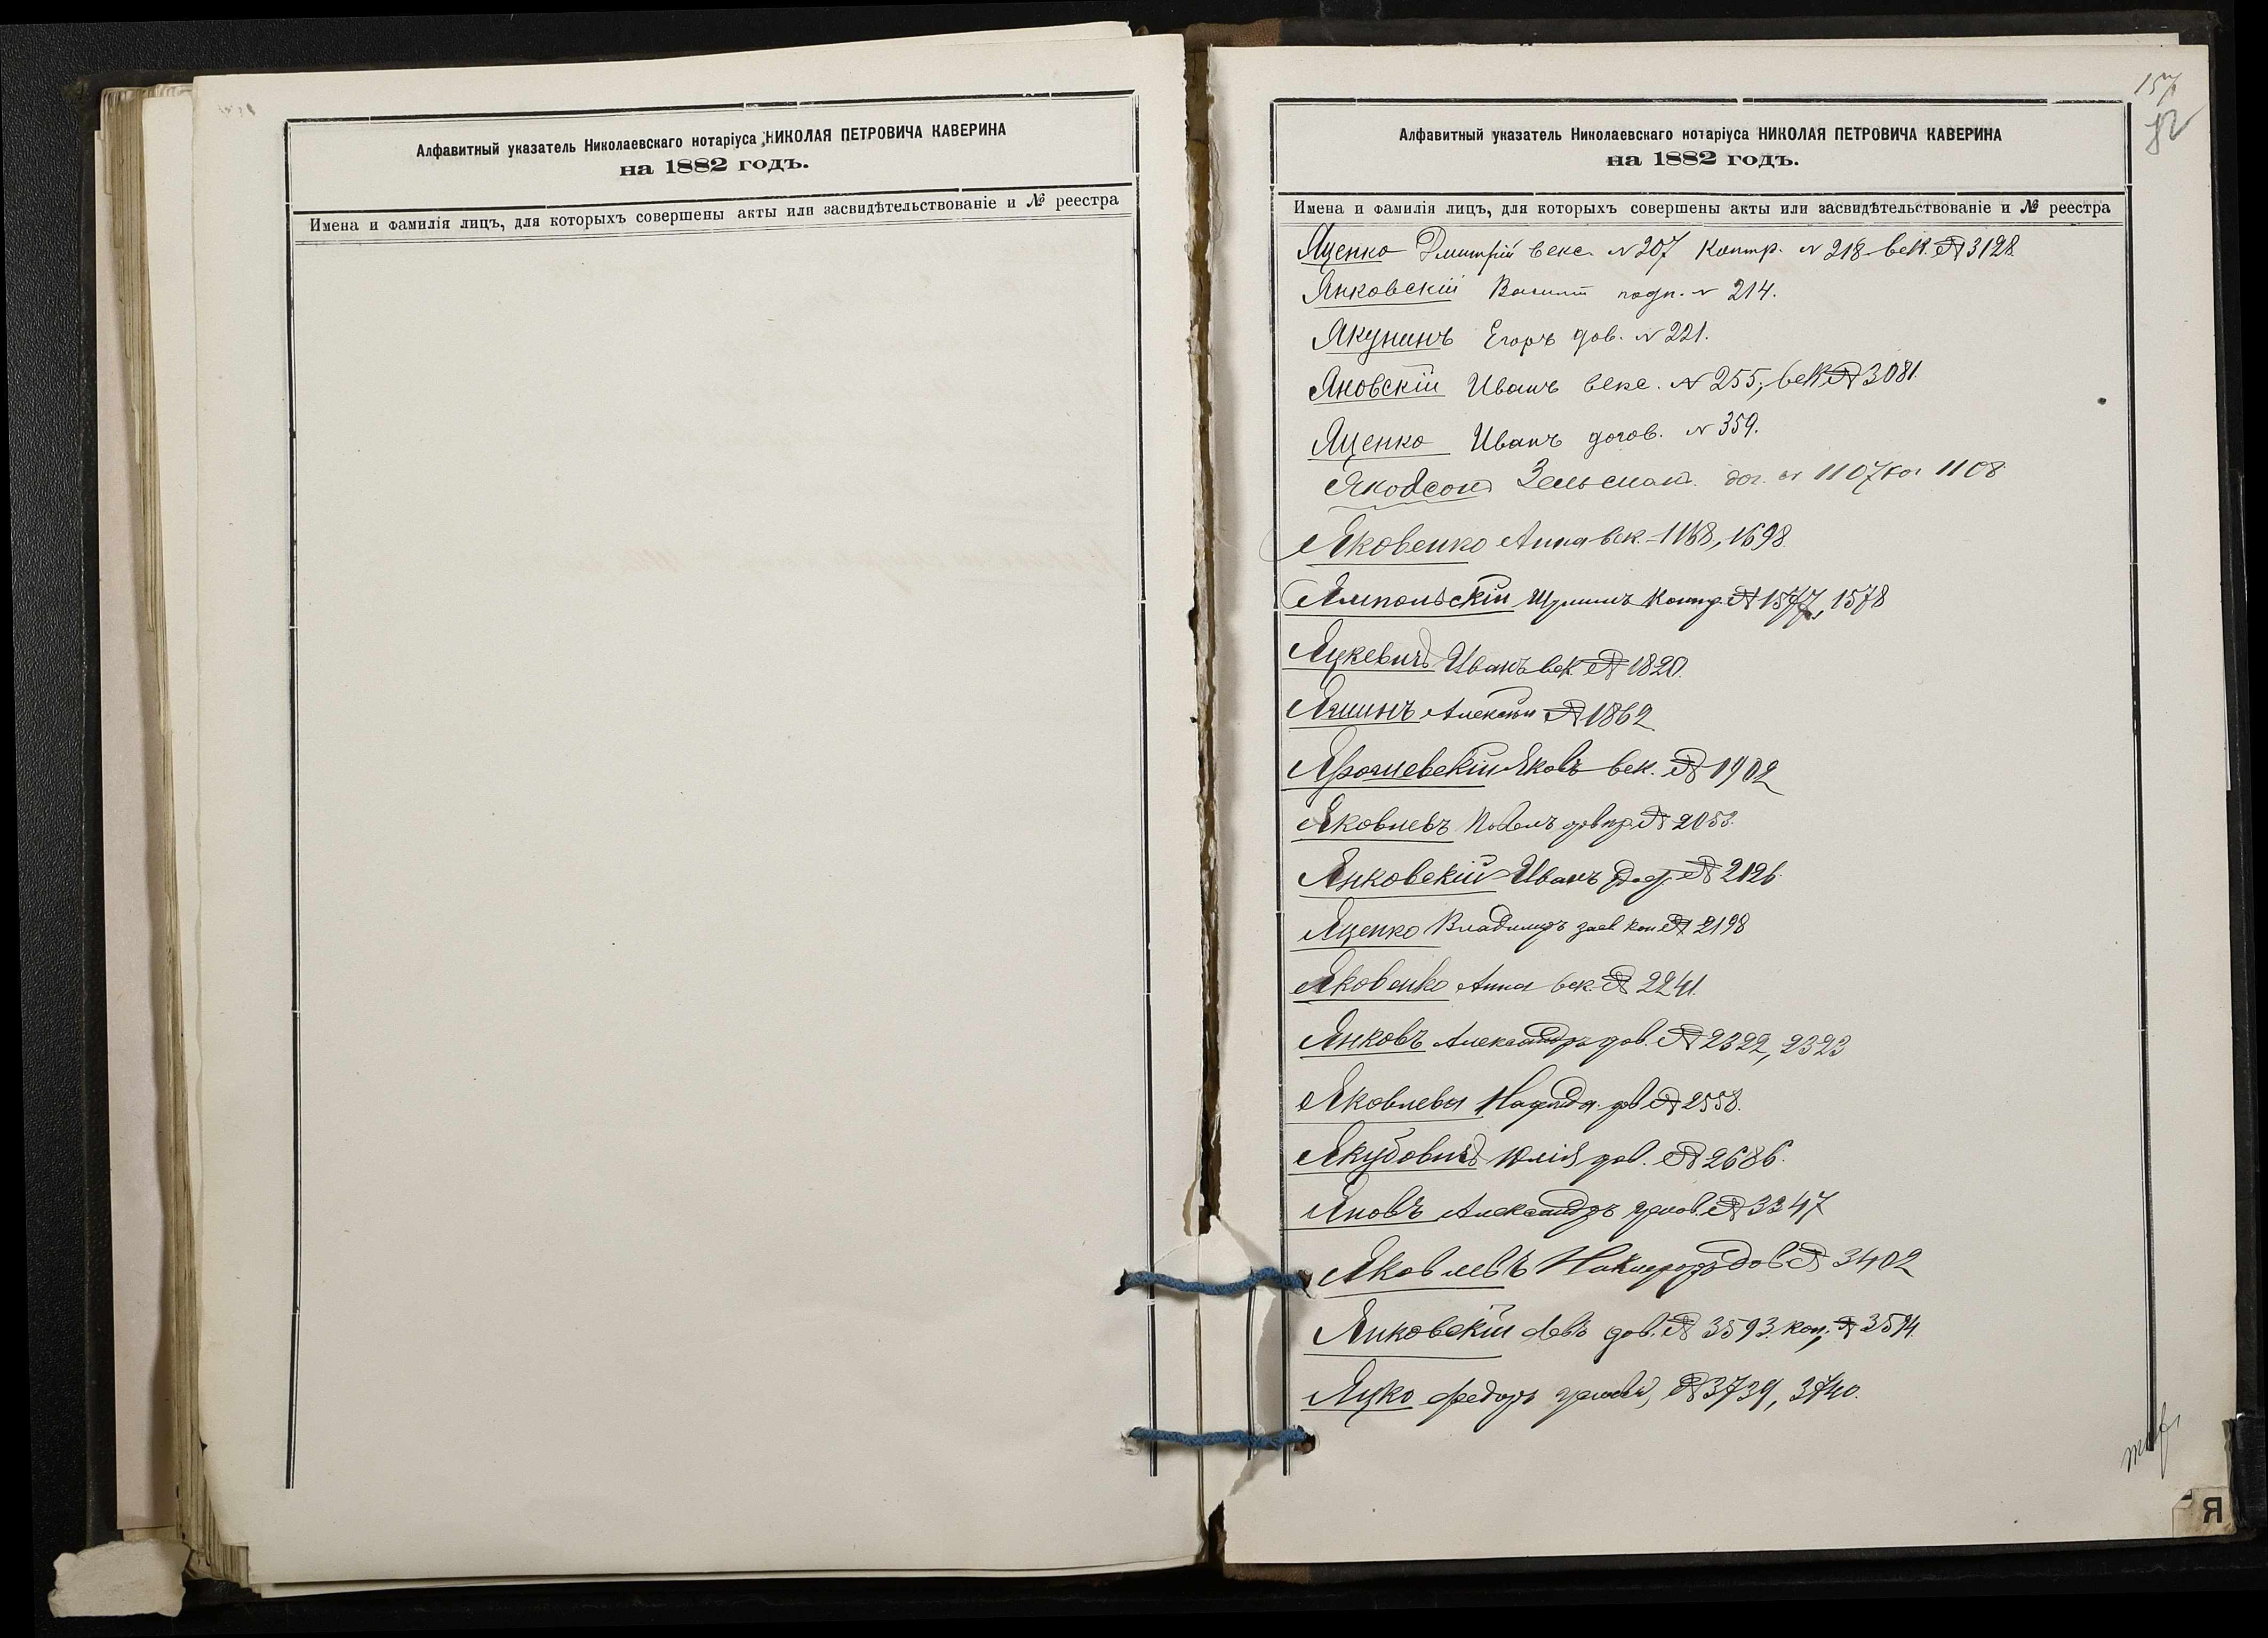 Алфавитный указатель Николаевскаго нотаріуса НИКОЛАЯ ПЕТРОВИЧА КАВЕРИНА
на 1882 годъ.
Имена и фамилія лицъ, для которыхъ совершены акты или засвидѣтельствованіе и № реестра
157
82
Алфавитный указатель Николаевскаго нотаріуса НИКОЛАЯ ПЕТРОВИЧА КАВЕРИНА
на 1882 годъ.
Имена и фамилія лицъ, для которыхъ совершены акты или засвидѣтельствованіе и № реестра
Яценко Дмитрій векс. № 207 контр. № 218 век. № 3128.
Янковскій Василій подп. № 214.
Якунинъ Егоръ дов. № 221.
Яновскій Иванъ векс. № 255; век № 3081.
Яценко Иванъ догов. № 359.
Якобсонъ Зельманъ дог. № 1107 1108
Яковенко Анна век. 1168, 1698.
Ямпольскій контр. № 1577, 1578
Яцкевичъ Иванъ век. № 1820.
Алексѣй № 1862
Ярошевскій Яковъ век. № 1902
Яковлевъ № 2053.
Янковскій Иванъ № 2126.
Яценко Владиміръ коп № 2198
Яковенко Анна век. № 2241.
Янковъ Александръ дов. № 2322, 2323
Яковлева Надежда дов № 2558.
Якубовичъ Юлія дов. № 2686.
Яновъ Александръ № 3347
Яковлевъ дов № 3402
Янковскій Левъ дов. № 3593. коп. № 3594.
Яцко Федоръ № 3739, 3740.
Я